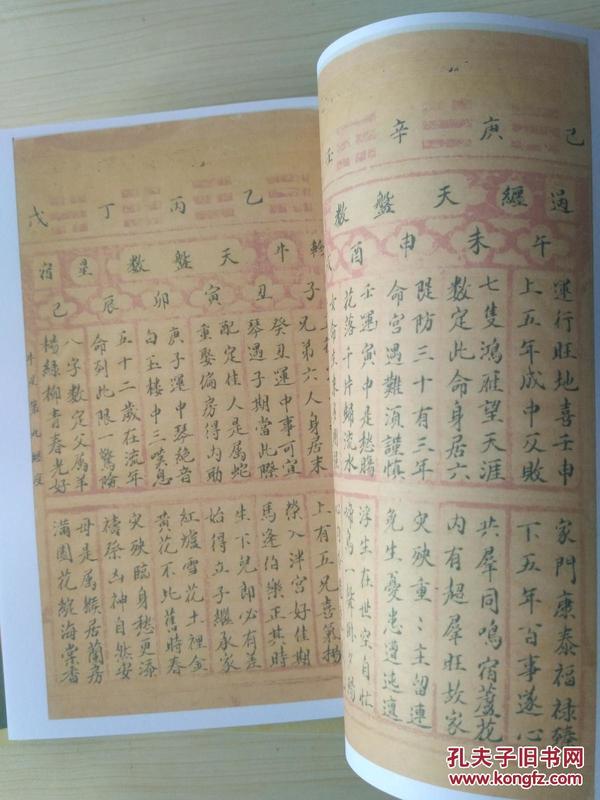 己庚辛壬
過纏天盤數
午未申酉
運行旺地喜壬申
上五年成中反敗
七隻鴻雁望天涯
數定此命身居六
隄防三十有三年
命宮遇難須謹慎
壬運寅中是愁腸
花落千片歸流水
家門康泰福祿臻
下五年百事遂心
共羣同鳴宿蘆花
內有超羣旺故家
灾殃重〻主留連
免生憂患遭迍邅
浮生在世空自忙
乙丙丁戊
軫牛天盤數星宿
子丑寅卯辰巳
兄弟六人身居末
癸丑運中事可宜
琴遇子期當此際
配定佳人是属蛇
重娶偏房得内助
庚子運中琴絶音
白玉樓中三嘆息
五十二歲在流年
命列此限一驚險
八字數定父属羊
楊綠柳青春光好
上有五兄喜氣揚
榮入泮宮好佳期
馬逢伯樂正其時
生下兒郎必有差
始得立子繼承家
紅爐雪花土裡金
黄花不比舊時春
灾殃臨身愁更添
禱祭凶神自然安
母是属猴居蘭房
滿園花綻海棠香
孔夫子旧书网
www.kongfz.com